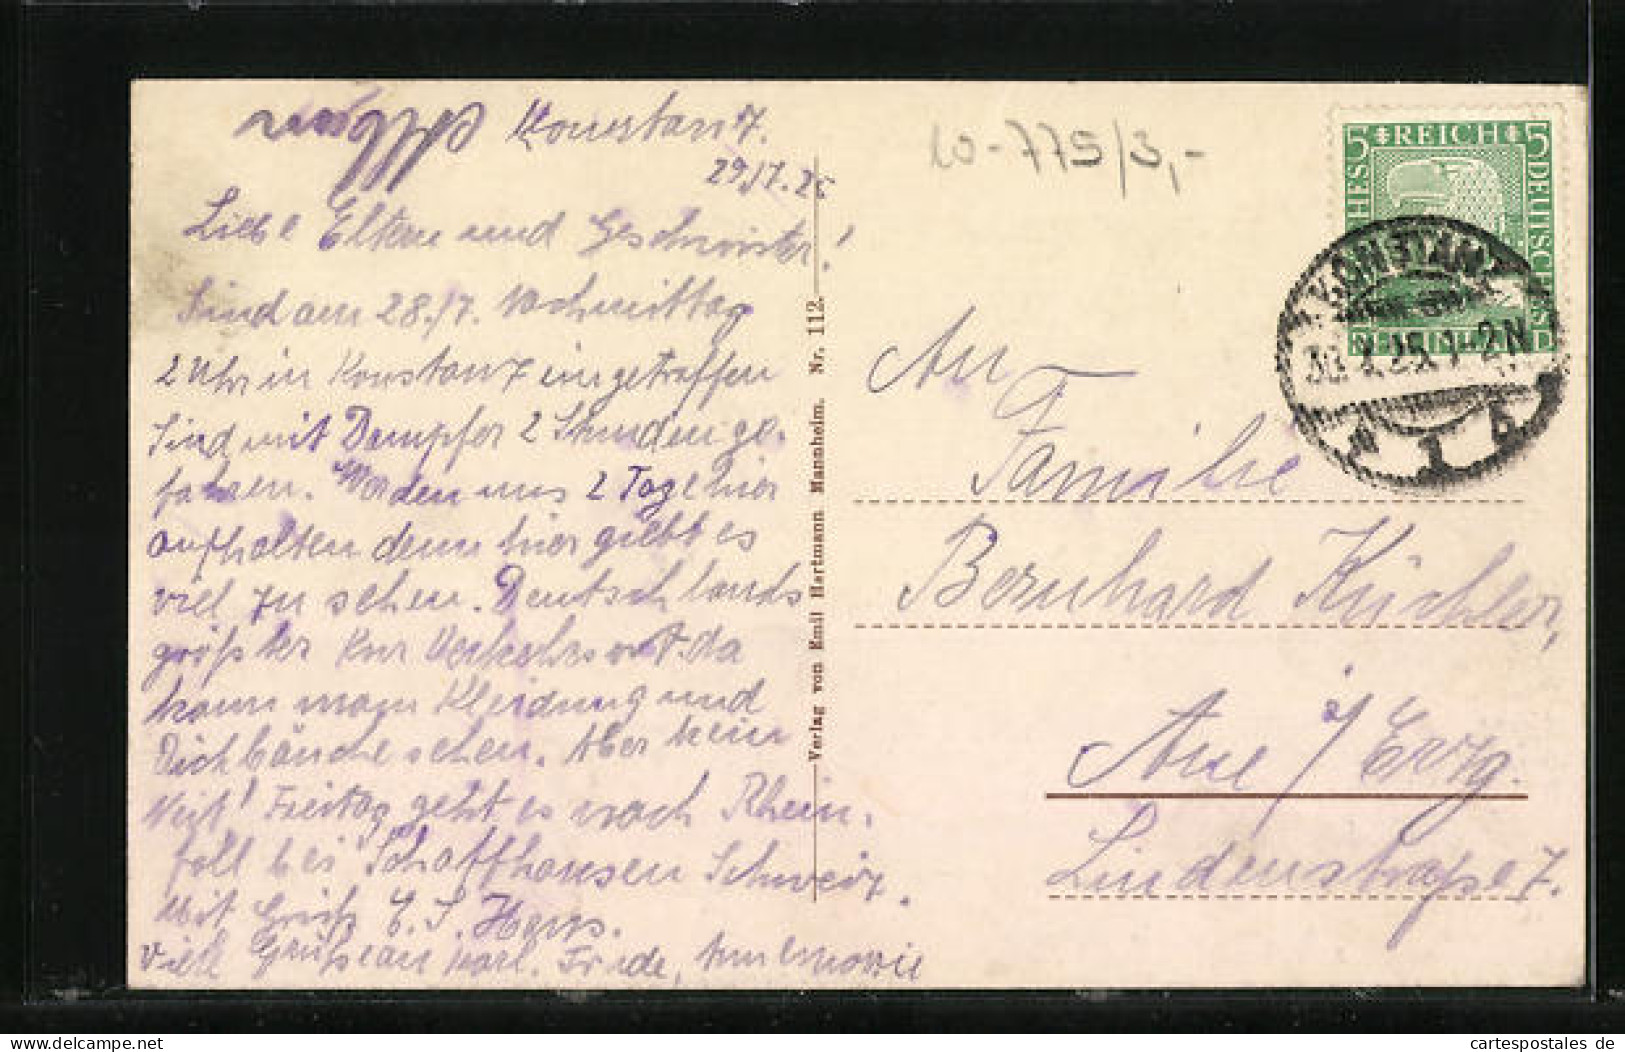 Konstanz.
29./7. 25
Liebe Eltern und Geschwister!
Sind am 28./7. Nachmittag
2 Uhr in Konstanz eingetroffen
Sind mit Dampfer 2 Stunden ge-
fahren. Werden uns 2 Tage hier
aufhalten denn hier giebt es
viel zu sehen. Deutschlands
größter Kur Verkehrsort da
kann man Kleidung und
sehen. Aber kein
Neit! Freitag geht es nach Rhein.
fall bei Schaffhausen Schweiz.
Mit Gruß E. S. Hans.
Viele Grüße an Karl. Friede,
Verlag von Emil Hartmann Mannheim. Nr. 112.
10-775/3,-
5 REICH 5
DEUTSCHES
RHEINLAND
KONSTANZ
30.7.25. 1-2N
An
Familie
Bernhard Küchler,
Aue i/Erzg.
Lindenstraße 7.
www.cartespostales.de
cartespostales.de